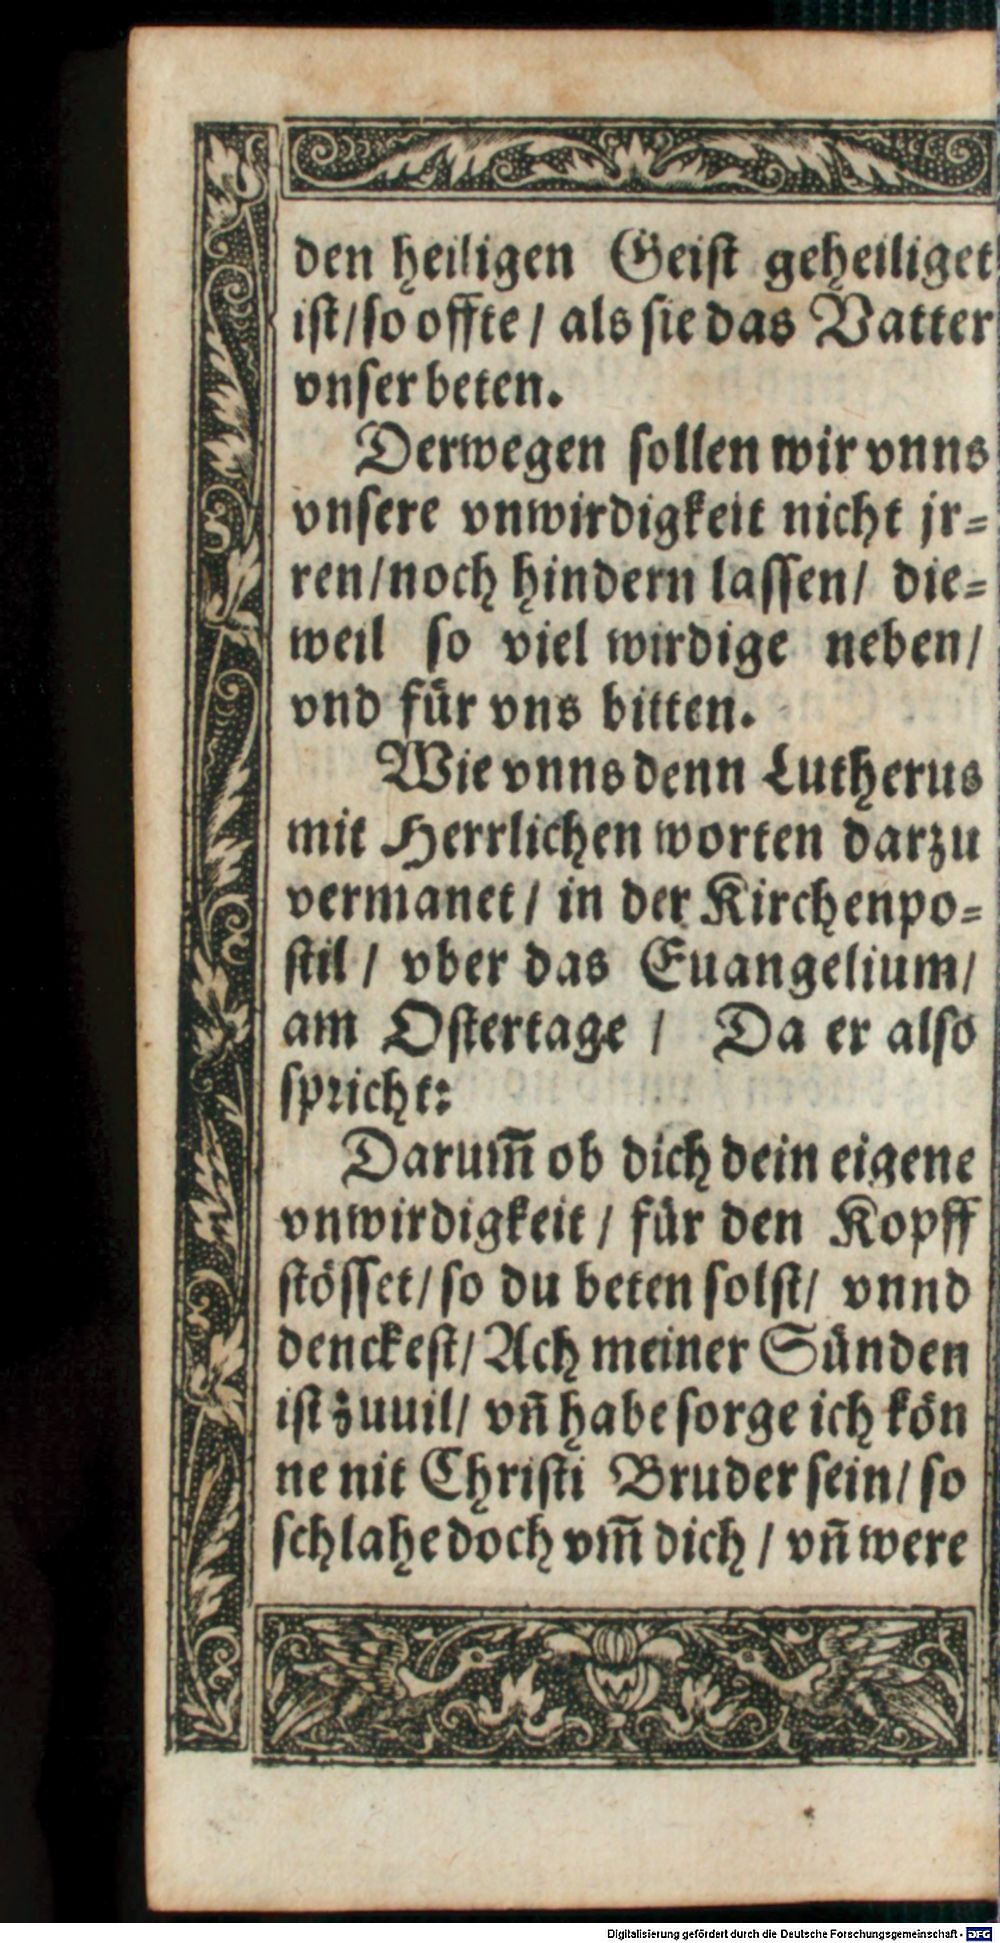 den heiligen Geist geheiliget
ist/ so offte / als sie das Vatter
vnser beten.
Derwegen sollen wir vnns
vnsere vnwirdigkeit nicht jr=
ren/ noch hindern lassen/ die=
weil so viel wirdige neben/
vnd für vns bitten.
Wie vnns denn Lutherus
mit Herrlichen worten darzu
vermanet / in der Kirchenpo=
stil / vber das Euangelium/
am Ostertage / Da er also
spricht:
Darum̃ ob dich dein eigene
vnwirdigkeit / für den Kopff
stösset/ so du beten solst/ vnnd
denckest/ Ach meiner Sünden
ist zuuil/ vñ habe sorge ich kön
ne nit Christi Bruder sein/ so
schlahe doch vm̃ dich / vñ were
Digitalisierung gefördert durch die Deutsche Forschungsgemeinschaft - DFG